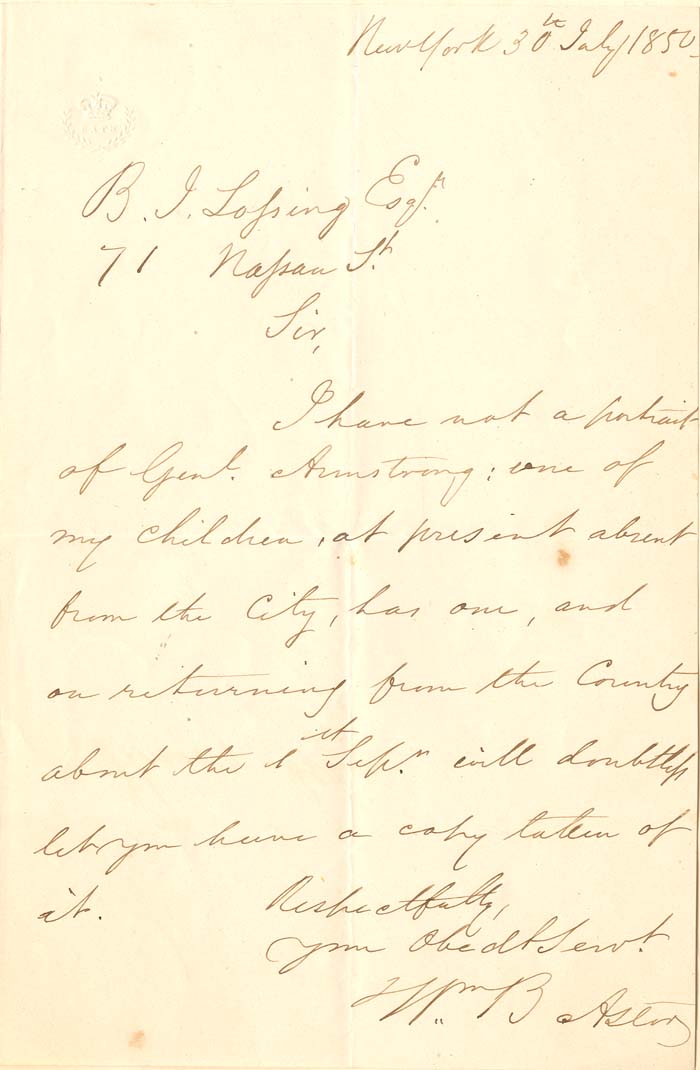 New York 30th July 1850
B. J. Lossing Esqr.
71 Nassau St.
Sir,
I have not a portrait
of Genl. Armstrong; one of
my children, at present absent
from the City, has one, and
on returning from the Country
about the 1st Sepr. will doubtless
let you have a copy taken of
it.
Respectfully,
your Obedt Servt.
Wm B Astor